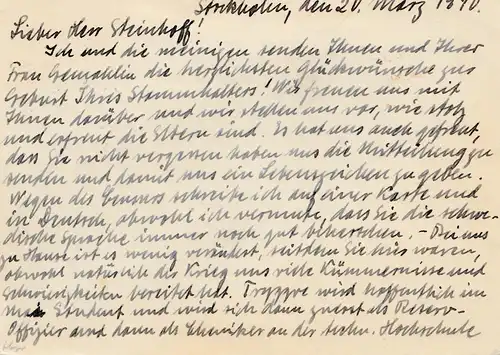 Stockholm, den 20. März 1940.
Lieber Herr Steinhoff!
Ich und die meinigen senden Ihnen und Ihrer
Frau Gemahlin die herzlichsten Glückwünsche zur
Geburt Ihres Stammhalters! Wir freuen uns mit
Ihnen darüber und wir stellen uns vor, wie stolz
und erfreut die Eltern sind. Es hat uns auch gefreut,
dass Sie nicht vergessen haben uns die Mitteilung zu
senden und damit uns ein Lebenszeichen zu geben.
Wegen des Censurs schreibe ich auf einer Karte und
in Deutsch, obwohl ich vermute, dass Sie die schwe-
dische Sprache immer noch gut beherrschen. – Bei uns
zu Hause ist es wenig verändert, seitdem Sie hier waren,
obwohl natürlich der Krieg uns viele Kümmernisse und
Schwierigkeiten bereitet hat. wird hoffentlich im
Mai Student und wird sich dann zuerst als Reserv-
Offizier und dann als Chemiker an der techn. Hochschule